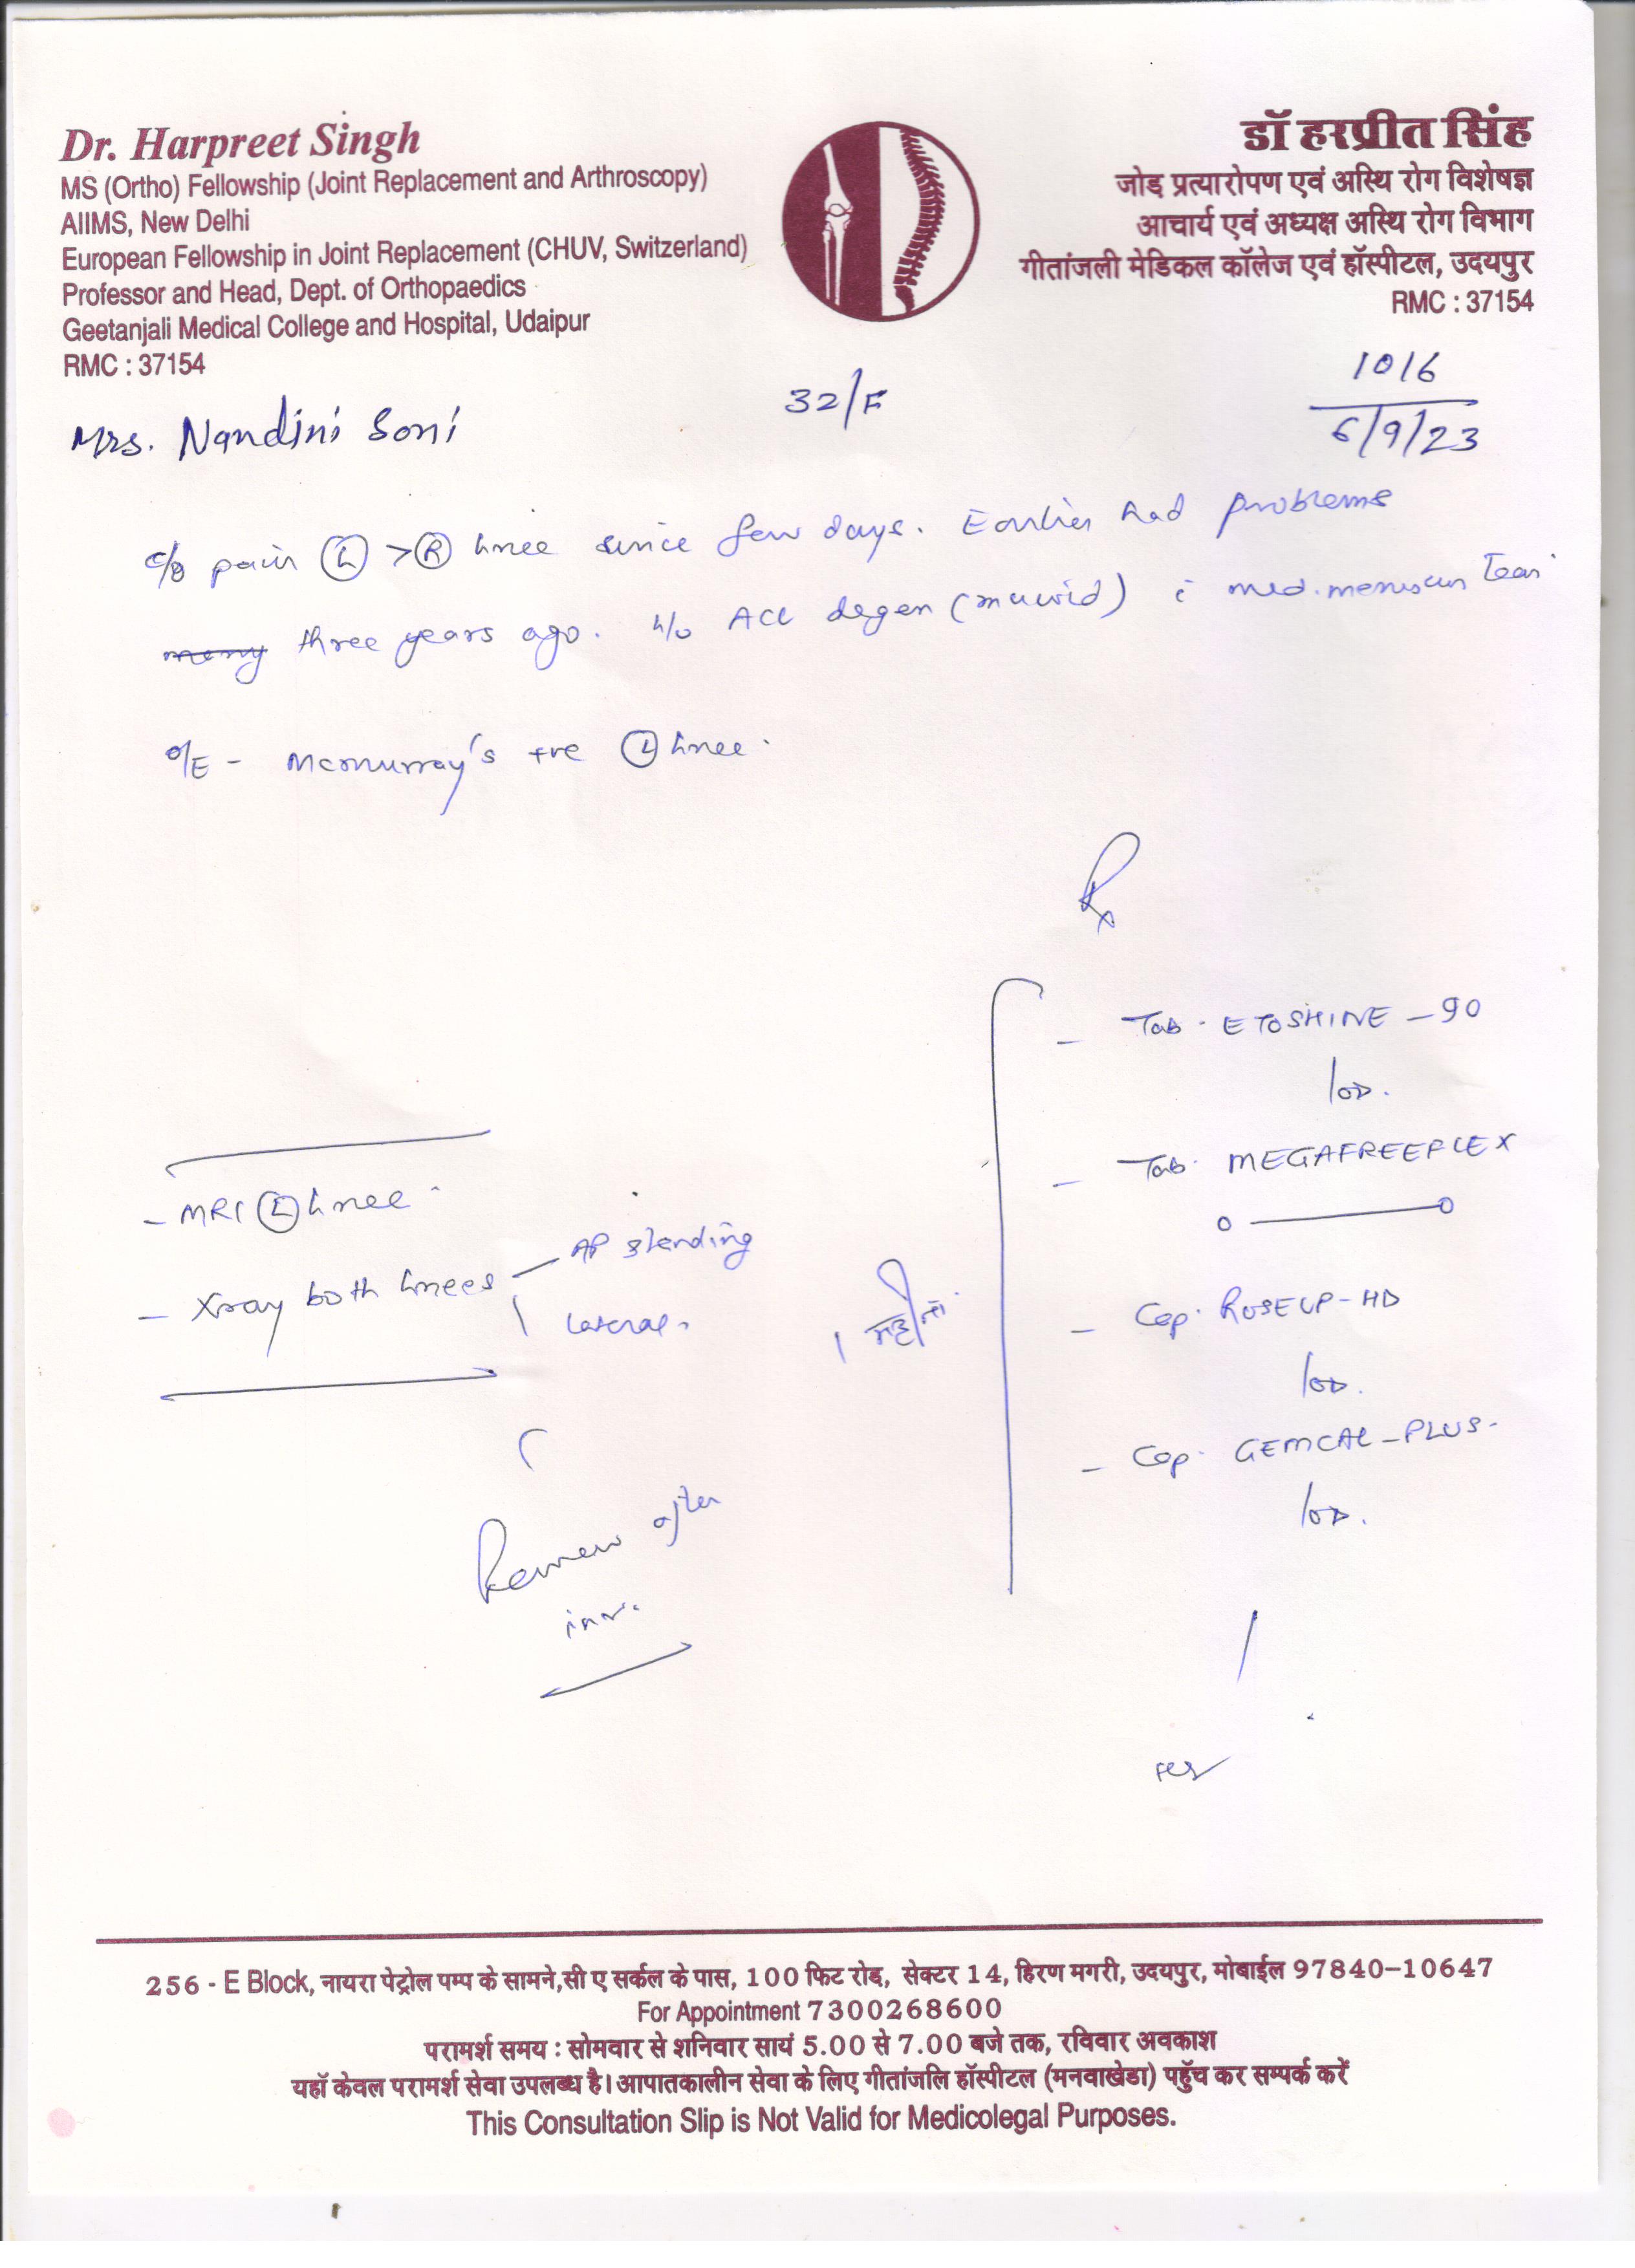 Dr. Harpreet Singh
MS (Ortho) Fellowship (Joint Replacement and Arthroscopy)
AIIMS, New Delhi
European Fellowship in Joint Replacement (CHUV, Switzerland)
Professor and Head, Dept. of Orthopaedics
Geetanjali Medical College and Hospital, Udaipur
RMC : 37154
डॉ हरप्रीत सिंह
जोड़ प्रत्यारोपण एवं अस्थि रोग विशेषज्ञ
आचार्य एवं अध्यक्ष अस्थि रोग विभाग
गीतांजली मेडिकल कॉलेज एवं हॉस्पीटल, उदयपुर
RMC : 37154
1016
6/9/23
Mrs. Nandini Soni 32/F
c/o pain (L) > (R) knee since few days. Earlier had problems
three years ago. h/o ACL degen (mucoid) c med. meniscus tear
O/E - McMurray's +ve (L) knee.
Rx
- Tab. ETOSHINE - 90
1 OD.
- Tab. MEGAFREEFLEX
0 — 0
- Cap. ROSEUP-HD
1 OD.
- Cap. GEMCAL-PLUS.
1 OD.
1 महीना
- MRI (L) knee.
- Xray both knees - AP standing
Lateral.
Review after
inv.
256 - E Block, नायरा पेट्रोल पम्प के सामने,सी ए सर्कल के पास, 100 फिट रोड, सेक्टर 14, हिरण मगरी, उदयपुर, मोबाईल 97840-10647
For Appointment 7300268600
परामर्श समय : सोमवार से शनिवार सायं 5.00 से 7.00 बजे तक, रविवार अवकाश
यहाँ केवल परामर्श सेवा उपलब्ध है। आपातकालीन सेवा के लिए गीतांजलि हॉस्पीटल (मनवाखेडा) पहुँच कर सम्पर्क करें
This Consultation Slip is Not Valid for Medicolegal Purposes.